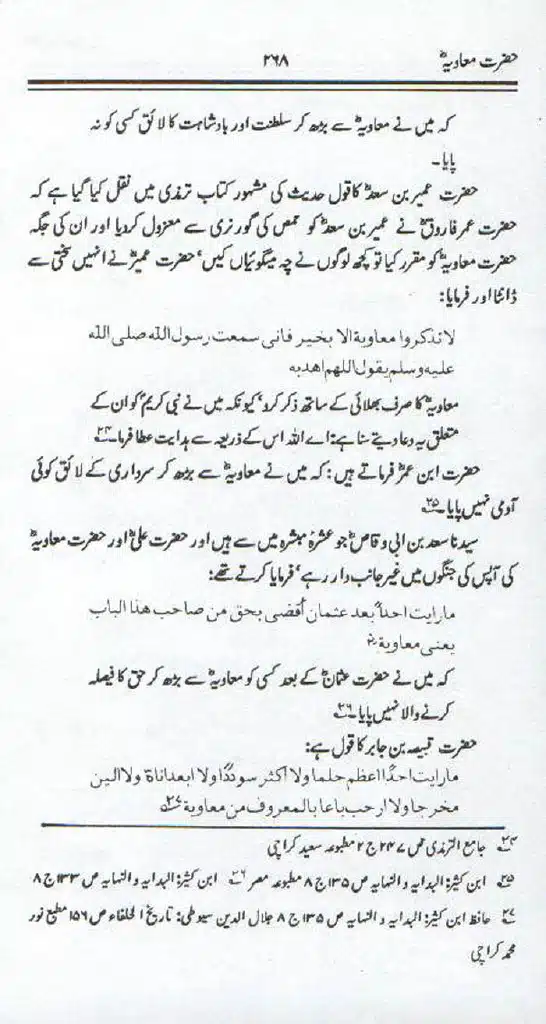 حضرت معاویہؓ ۲۶۸
کہ میں نے معاویہؓ سے بڑھ کر سلطنت اور بادشاہت کا لائق کسی کو نہ
پایا۔
حضرت عمیر بن سعدؓ کا قول حدیث کی مشہور کتاب ترمذی میں نقل کیا گیا ہے کہ
حضرت عمر فاروقؓ نے عمیر بن سعدؓ کو حمص کی گورنری سے معزول کردیا اور ان کی جگہ
حضرت معاویہؓ کو مقرر کیا تو کچھ لوگوں نے چہ میگوئیاں کیں' حضرت عمیرؓ نے انہیں سختی سے
ڈانٹا اور فرمایا:
لا تذکروا معاویة الا بخیر فانی سمعت رسول اللّٰه صلی اللّٰه
علیه وسلم یقول اللهم اهد به
معاویہؓ کا صرف بھلائی کے ساتھ ذکر کرو' کیونکہ میں نے نبی کریمؐ کو ان کے
متعلق یہ دعا دیتے سنا ہے: اے اللہ اس کے ذریعہ سے ہدایت عطا فرما۔ ۲۴؎
حضرت ابن عمرؓ فرماتے ہیں: کہ میں نے معاویہؓ سے بڑھ کر سرداری کے لائق کوئی
آدمی نہیں پایا۔ ۲۵؎
سیدنا سعد بن ابی وقاصؓ جو عشرہٗ مبشرہ میں سے ہیں اور حضرت علیؓ اور حضرت معاویہؓ
کی آپس کی جنگوں میں غیر جانب دار رہے' فرمایا کرتے تھے:
ما رایت احداً بعد عثمان أقضی بحق من صاحب هذا الباب
یعنی معاویةؓ
کہ میں نے حضرت عثمانؓ کے بعد کسی کو معاویہؓ سے بڑھ کر حق کا فیصلہ
کرنے والا نہیں پایا۔ ۲۶؎
حضرت قبیصہ بن جابر کا قول ہے:
ما رایت احدًا اعظم حلما ولا اکثر سوددًا ولا ابعد اناة ولا الین
مخرجا ولا ارحب باعا بالمعروف من معاویة ۲۷؎
۲۴؎ جامع الترمذی ص ۲۴۷ ج ۲ مطبوعہ سعید کراچی
۲۵؎ ابن کثیرؒ: البدایہ و النہایہ ص ۱۳۵ ج ۸ مطبوعہ مصر ۲۶؎ ابن کثیرؒ: البدایہ و النہایہ ص ۱۳۳ ج ۸
۲۷؎ حافظ ابن کثیرؒ: البدایہ و النہایہ ص ۱۳۵ ج ۸ جلال الدین سیوطی: تاریخ الخلفاء ص ۱۵۶ مطبع نور
محمد کراچی